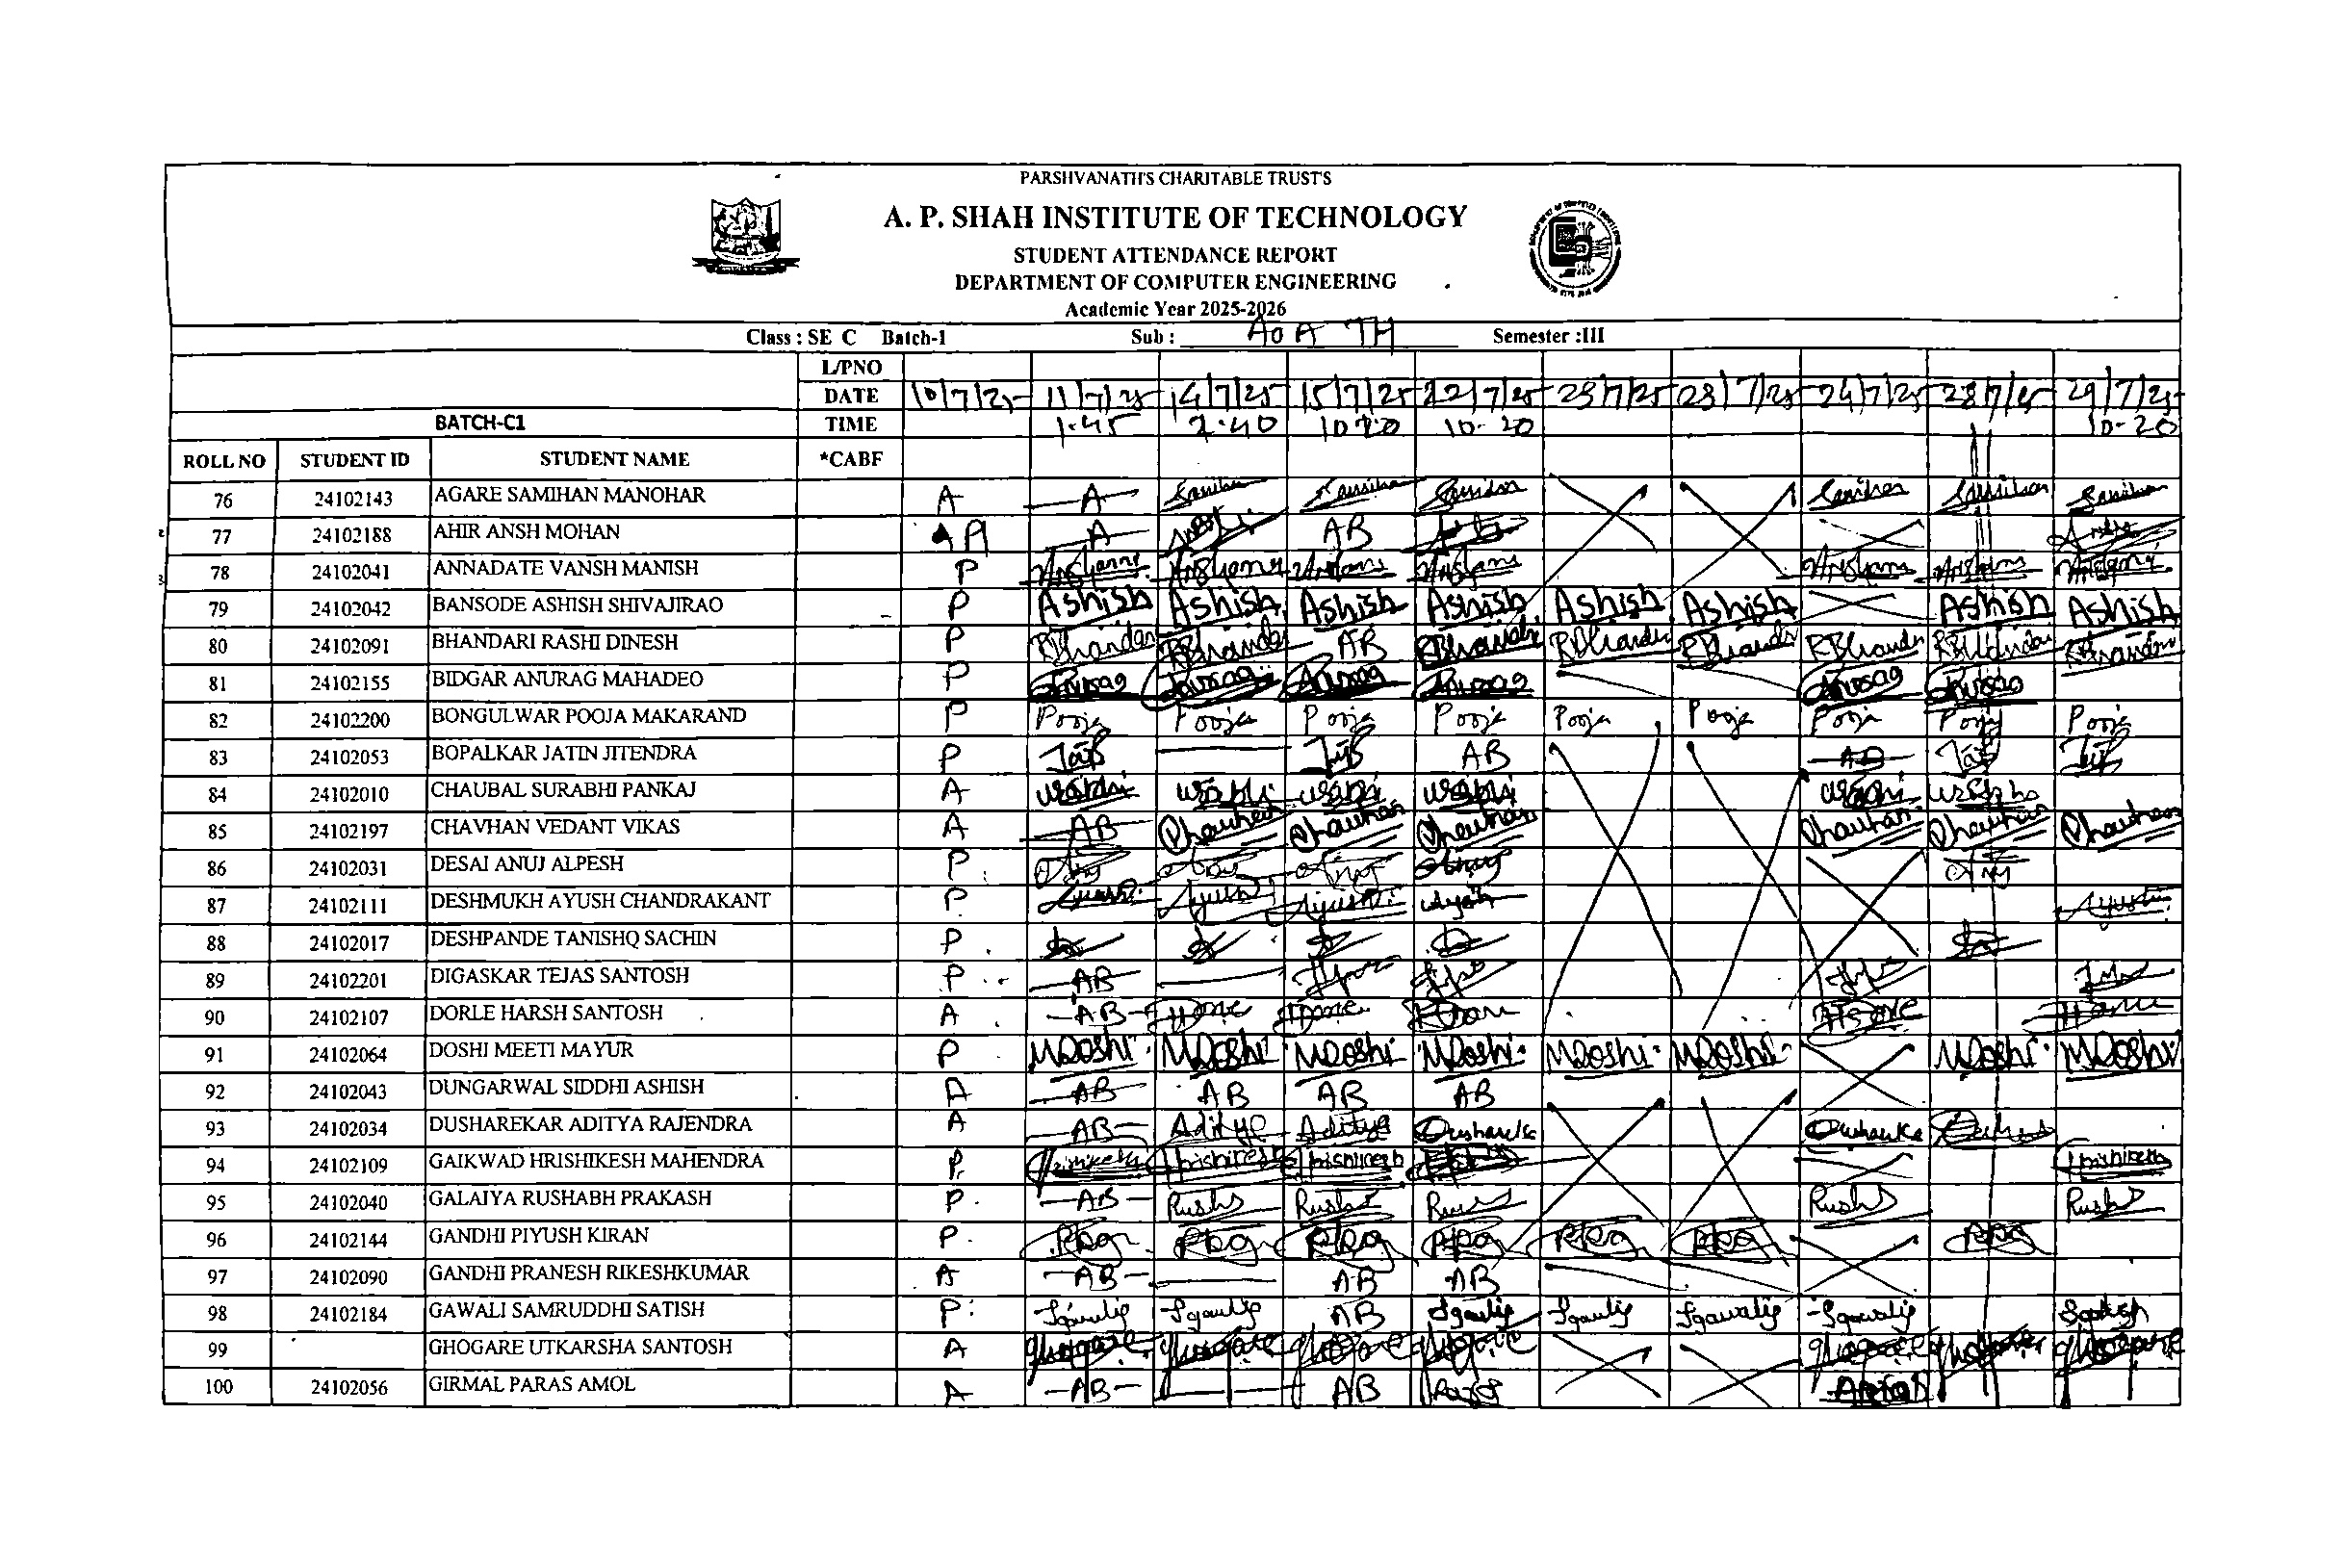 PARSHVANATH'S CHARITABLE TRUST'S
A. P. SHAH INSTITUTE OF TECHNOLOGY
STUDENT ATTENDANCE REPORT
DEPARTMENT OF COMPUTER ENGINEERING
Academic Year 2025-2026
Class : SE C Batch-1 Sub : AoA TH Semester :III
L/PNO
DATE 10/7/25 11/7/25 14/7/25 15/7/25 22/7/25 23/7/25 23/7/25 24/7/25 28/7/25 29/7/25
BATCH-C1 TIME 1.45 2.40 10.20 10-20 10-20
ROLL NO STUDENT ID STUDENT NAME *CABF
76 24102143 AGARE SAMIHAN MANOHAR A A
77 24102188 AHIR ANSH MOHAN A A AB
78 24102041 ANNADATE VANSH MANISH P
79 24102042 BANSODE ASHISH SHIVAJIRAO P Ashish Ashish Ashish Ashish Ashish Ashish Ashish Ashish
80 24102091 BHANDARI RASHI DINESH P RBhandari RBhandari AB RBhandari RBhandari RBhandari RBhandari RBhandari RBhandari
81 24102155 BIDGAR ANURAG MAHADEO P Anurag Anurag Anurag Anurag Anurag Anurag
82 24102200 BONGULWAR POOJA MAKARAND P Pooja Pooja Pooja Pooja Pooja Pooja Pooja Pooja Pooja
83 24102053 BOPALKAR JATIN JITENDRA P AB AB
84 24102010 CHAUBAL SURABHI PANKAJ A
85 24102197 CHAVHAN VEDANT VIKAS A AB Chauhan Chauhan Chauhan Chauhan Chauhan Chauhan
86 24102031 DESAI ANUJ ALPESH P
87 24102111 DESHMUKH AYUSH CHANDRAKANT P Ayush Ayush Ayush Ayush
88 24102017 DESHPANDE TANISHQ SACHIN P
89 24102201 DIGASKAR TEJAS SANTOSH P AB
90 24102107 DORLE HARSH SANTOSH A AB
91 24102064 DOSHI MEETI MAYUR P MDoshi MDoshi MDoshi MDoshi MDoshi MDoshi MDoshi MDoshi
92 24102043 DUNGARWAL SIDDHI ASHISH A AB AB AB AB
93 24102034 DUSHAREKAR ADITYA RAJENDRA A AB Aditya Aditya
94 24102109 GAIKWAD HRISHIKESH MAHENDRA P Hrishikesh Hrishikesh Hrishikesh Hrishikesh
95 24102040 GALAIYA RUSHABH PRAKASH P AB
96 24102144 GANDHI PIYUSH KIRAN P
97 24102090 GANDHI PRANESH RIKESHKUMAR A AB AB AB
98 24102184 GAWALI SAMRUDDHI SATISH P Sgawali Sgawali AB Sgawali Sgawali Sgawali Sgawali
99 GHOGARE UTKARSHA SANTOSH A
100 24102056 GIRMAL PARAS AMOL A AB AB